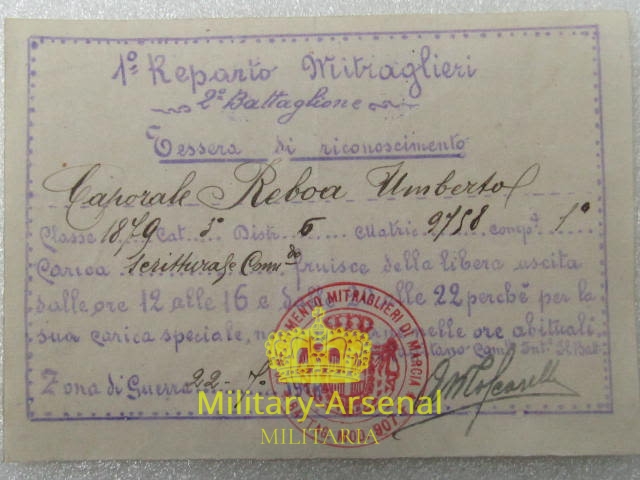 1º Reparto Mitraglieri
2º Battaglione
Tessera di riconoscimento
Caporale Reboa Umberto
Classe 1879 Cat. 3ª Distr. 6 Matric. 2758 Comp. 1ª
Carica Scritturale Com.do fruisce della libera uscita
dalle ore 12 alle 16 e alle 22 perché per la
sua carica speciale, nelle ore abituali
Zona di Guerra 22-7º
REGGIMENTO MITRAGLIERI DI MARCIA
1907
Military-Arsenal
MILITARIA